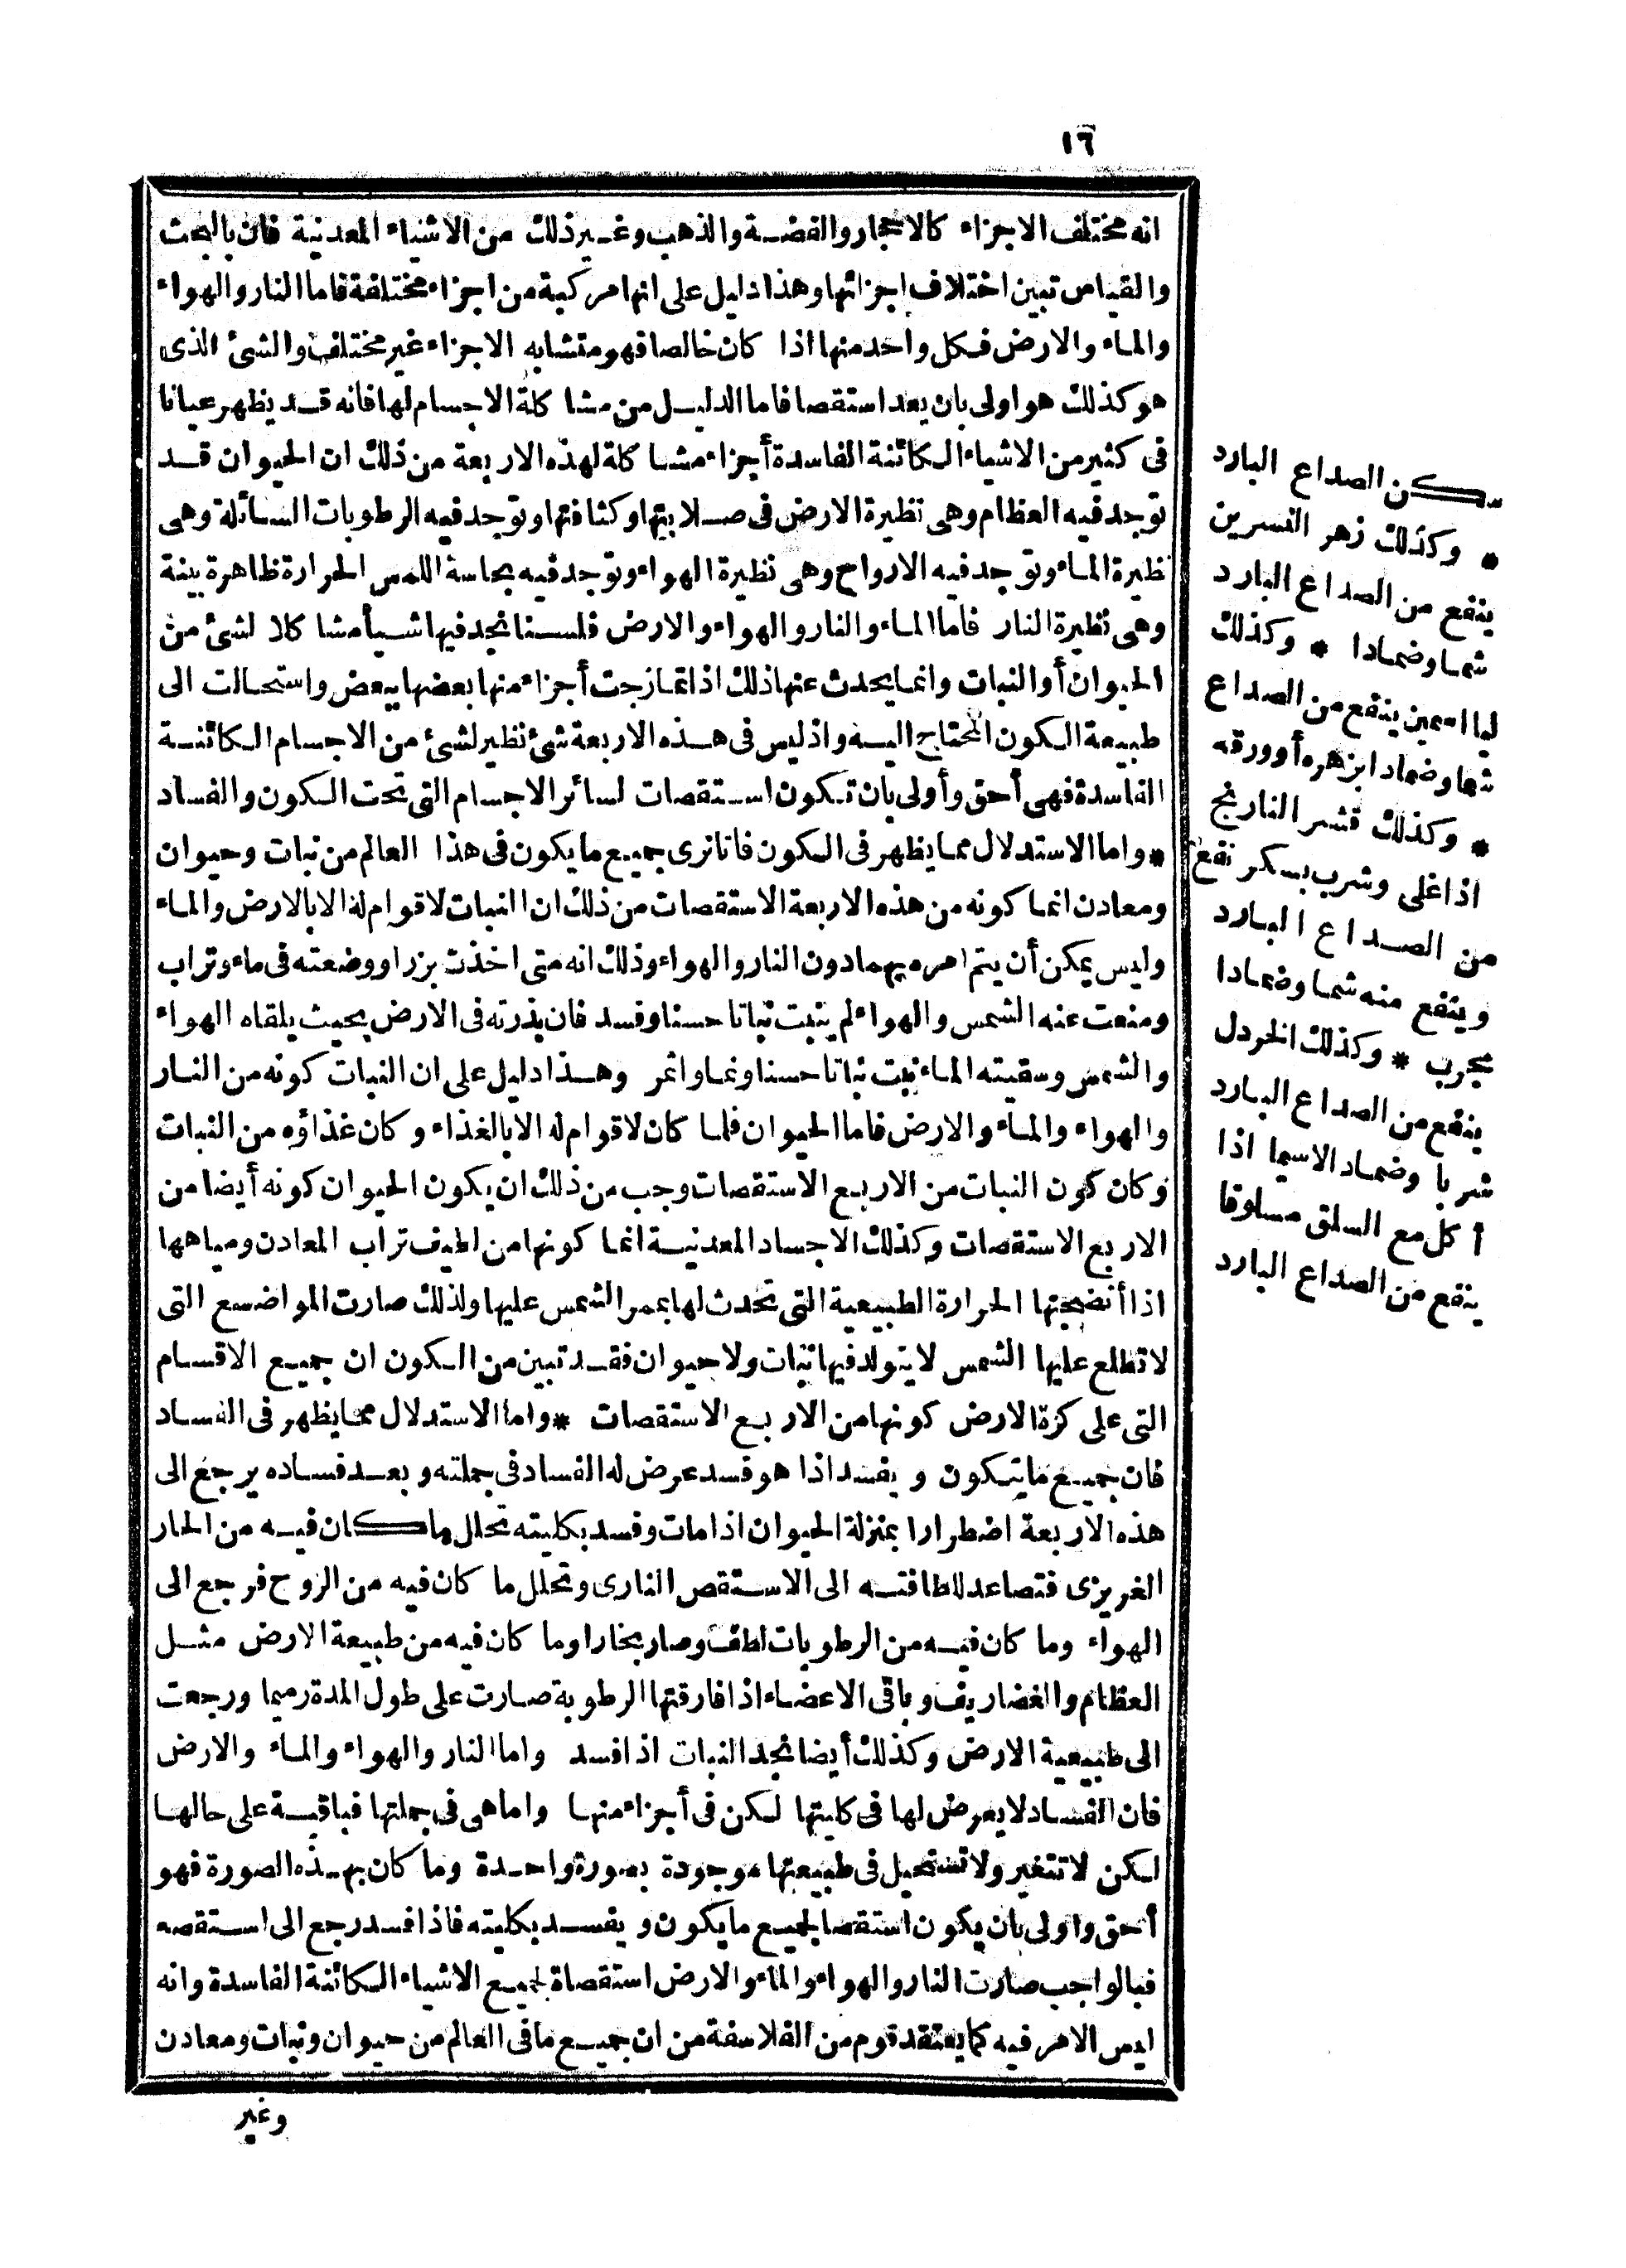 ١٦
انه مختلف الاجزاء كالاحجار والفضة والذهب وغير ذلك من الاشياء المعدنية فان بالبحث
والقياس تبين اختلاف اجزائها وهذا دليل على انها مركبة من اجزاء مختلفة فاما النار والهواء
والماء والارض فكل واحد منها اذا كان خالصا فهو متشابه الاجزاء غير مختلف والشئ الذى
هو كذلك هو اولى بان يعد استقصا فاما الدليل من مشاكلة الاجسام لها فانه قد يظهر عيانا
فى كثير من الاشياء الكائنة الفاسدة أجزاء مشاكلة لهذه الاربعة من ذلك ان الحيوان قد
توجد فيه العظام وهى نظيرة الارض فى صلابتها وكثافتها وتوجد فيه الرطوبات السائلة وهى
نظيرة الماء وتوجد فيه الارواح وهى نظيرة الهواء وتوجد فيه بحاسة اللمس الحرارة ظاهرة بينة
وهى نظيرة النار فاما الماء والنار والهواء والارض فلسنا نجد فيها شيأ مشاكلا لشئ من
الحيوان أو النبات وانما يحدث عنها ذلك اذا تمازجت أجزاء منها بعضها ببعض واستحالت الى
طبيعة الكون المحتاج اليه واذ ليس فى هذه الاربعة شئ نظير لشئ من الاجسام الكائنة
الفاسدة فهى أحق وأولى بان تكون استقصات لسائر الاجسام التى تحت الكون والفساد
* واما الاستدلال مما يظهر فى الكون فانا نرى جميع ما يكون فى هذا العالم من نبات وحيوان
ومعادن انما كونه من هذه الاربعة الاستقصات من ذلك ان النبات لا قوام له الا بالارض والماء
وليس يمكن أن يتم امره بهما دون النار والهواء وذلك انه متى اخذت بزرا ووضعته فى ماء وتراب
ومنعت عنه الشمس والهواء لم ينبت نباتا حسنا وفسد فان بذرته فى الارض بحيث يلقاه الهواء
والشمس وسقيته الماء نبت نباتا حسنا ونما واثمر وهذا دليل على ان النبات كونه من النار
والهواء والماء والارض فاما الحيوان فلما كان لا قوام له الا بالغذاء وكان غذاؤه من النبات
وكان كون النبات من الاربع الاستقصات وجب من ذلك ان يكون الحيوان كونه أيضا من
الاربع الاستقصات وكذلك الاجساد المعدنية انما كونها من لطيف تراب المعادن ومياهها
اذا أنضجتها الحرارة الطبيعية التى تحدث لها بممر الشمس عليها ولذلك صارت المواضع التى
لا تطلع عليها الشمس لا يتولد فيها نبات ولا حيوان فقد تبين من الكون ان جميع الاقسام
التى على كرة الارض كونها من الاربع الاستقصات * واما الاستدلال مما يظهر فى الفساد
فان جميع ما يتكون ويفسد اذا هو فسد عرض له الفساد فى جملته وبعد فساده يرجع الى
هذه الاربعة اضطرارا بمنزلة الحيوان اذا مات وفسد بكليته تحلل ما كان فيه من الحار
الغريزى فتصاعد للطافته الى الاستقص النارى وتحلل ما كان فيه من الروح فرجع الى
الهواء وما كان فيه من الرطوبات لطف وصار بخارا وما كان فيه من طبيعة الارض مثل
العظام والغضاريف وباقى الاعضاء اذا فارقتها الرطوبة صارت على طول المدة رميما ورجعت
الى طبيعية الارض وكذلك أيضا نجد النبات اذا فسد واما النار والهواء والماء والارض
فان الفساد لا يعرض لها فى كليتها لكن فى أجزاء منها واما هى فى جملتها فباقية على حالها
لكن لا تتغير ولا تستحيل فى طبيعتها موجودة بصورة واحدة وما كان بهذه الصورة فهو
أحق واولى بان يكون استقصا لجميع ما يكون ويفسد بكليته فاذا فسد رجع الى استقصه
فبالواجب صارت النار والهواء والماء والارض استقصاة لجميع الاشياء الكائنة الفاسدة وانه
ليس الامر فيه كما يعتقد قوم من الفلاسفة من ان جميع ما فى العالم من حيوان ونبات ومعادن
وغير
سكن الصداع البارد
* وكذلك زهر النسرين
ينفع من الصداع البارد
شما وضمادا * وكذلك
لياسمين ينفع من الصداع
شما وضمادا بزهره أو ورقه
* وكذلك قشر النارنج
اذا غلى وشرب بسكر نفع
من الصداع البارد
وينفع منه شما وضمادا
مجرب * وكذلك الخردل
ينفع من الصداع البارد
شربا وضمادا لاسيما اذا
أكل مع السلق مسلوقا
ينفع من الصداع البارد